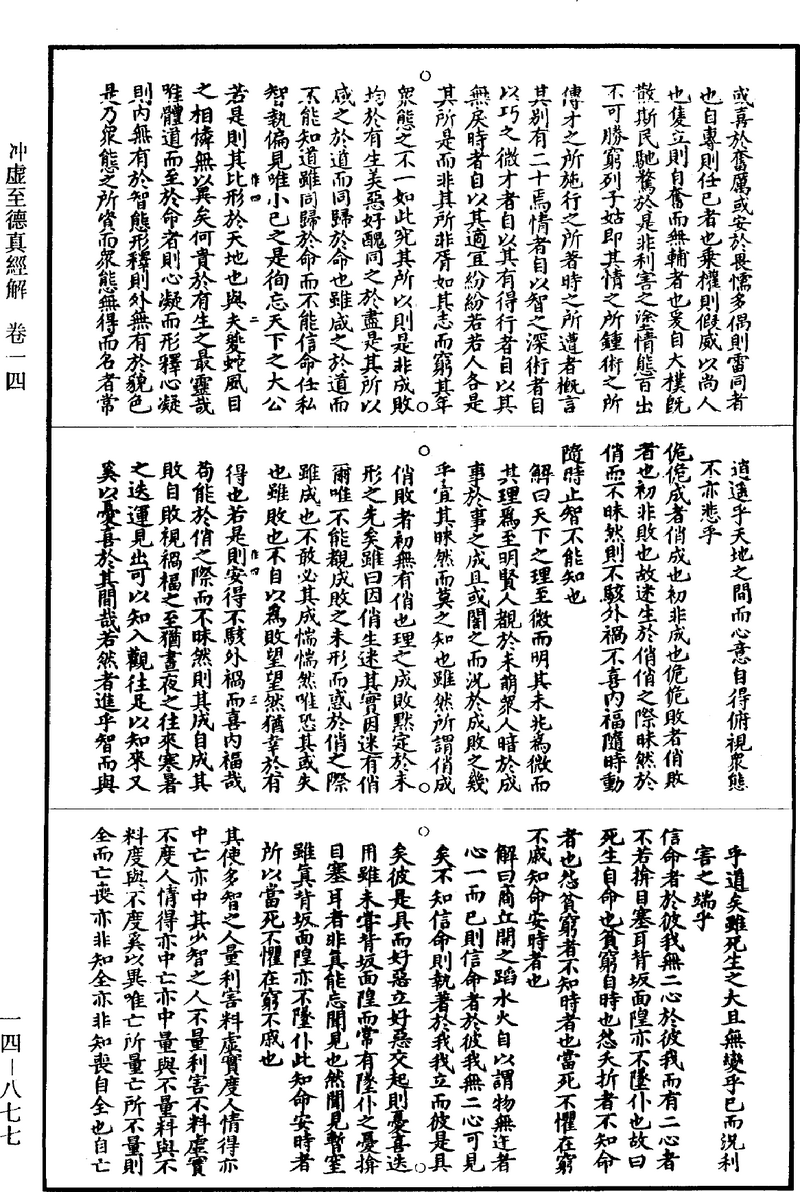 冲虛至德真經解　卷一四
一四—八七七
或喜於奮厲或安於畏懦多偶則雷同者
也自專則任己者也乘權則假威以尚人
也隻立則自奮而無輔者也爰自大樸既
散斯民馳騖於是非利害之塗情態百出
不可勝窮列子姑即其情之所鍾術之所
傳才之所施行之所者時之所遭者槩言
其別有二十焉情者自以智之深術者自
以巧之微才者自以其有得行者自以其
無戾時者自以其適宜紛紛若若人各是
其所是而非其所非胥如其志而窮其年
衆態之不一如此究其所以則是非成敗
均於有生美惡好醜同之於盡是其所以
咸之於道而同歸於命也雖咸之於道而
不能知道雖同歸於命而不能信命任私
智執偏見唯小己之是徇忘天下之大公
若是則其比形於天地也與夫夔蛇風目
之相憐無以異矣何貴於有生之最靈哉
唯體道而至於命者則心凝而形釋心凝
則內無有於智態形釋則外無有於貌色
是乃衆態之所資而衆態無得而名者常
逍遙乎天地之間而心意自得俯視衆態
不亦悲乎
佹佹成者俏成也初非成也佹佹敗者俏敗
者也初非敗也故迷生於俏俏之際昧然於
俏而不昧然則不駭外禍不喜內福隨時動
隨時止智不能知也
解曰天下之理至微而明其未兆為微而
其理為至明賢人觀於未萌衆人暗於成
事於事之成且或闇之而況於成敗之幾
乎宜其昧然而莫之知也雖然所謂俏成
俏敗者初無有俏也理之成敗默定於未
形之先矣雖曰因俏生迷其實因迷有俏
爾唯不能觀成敗之未形而惑於俏之際
雖成也不敢必其成惴惴然唯恐其或失
也雖敗也不自以為敗望望然猶幸於有
得也若是則安得不駭外禍而喜內福哉
苟能於俏之際而不昧然則其成自成其
敗自敗視禍福之至猶晝夜之往來寒暑
之迭運見出可以知入觀往足以知來又
奚以憂喜於其間哉若然者進乎智而與
乎道矣雖死生之大且無變乎已而況利
害之端乎
信命者於彼我無二心於彼我而有二心者
不若揜目塞耳背坂面隍亦不墜仆也故曰
死生自命也貧窮自時也怨夭折者不知命
者也怨貧窮者不知時者也當死不懼在窮
不戚知命安時者也
解曰商丘開之蹈水火自以謂物無迕者
心一而已則信命者於彼我無二心可見
矣不知信命則執著於我我立而彼是具
矣彼是具而好惡立好惡交起則憂喜迭
用雖未嘗背坂面隍而常有墜仆之憂揜
目塞耳者非真能忘聞見也然聞見暫窒
雖真背坂面隍亦不墜仆此知命安時者
所以當死不懼在窮不戚也
其使多智之人量利害料虛實度人情得亦
中亡亦中其少智之人不量利害不料虛實
不度人情得亦中亡亦中量與不量料與不
料度與不度奚以異唯亡所量亡所不量則
全而亡喪亦非知全亦非知喪自全也自亡